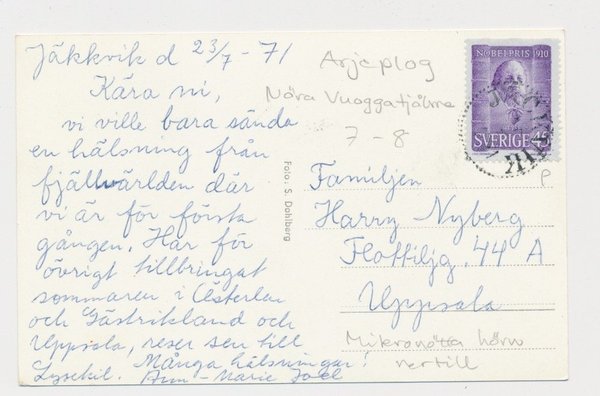 Jäkkvik d 23/7 - 71
Kära ni,
vi ville bara sända
en hälsning från
fjällvärlden där
vi är för första
gången. Har för
övrigt tillbringat
sommaren i Österlen
och Gästrikland och
Uppsala, reser sen till
Lysekil. Många hälsningar!
Ann-Marie Joel
Arjeplog
Nära Vuoggatjålme
7 - 8
NOBELPRIS 1910
SVERIGE 45
Foto: S. Dahlberg
Familjen
Harry Nyberg
Flottiljg. 44 A
Uppsala
Mikronötta hörn
nertill